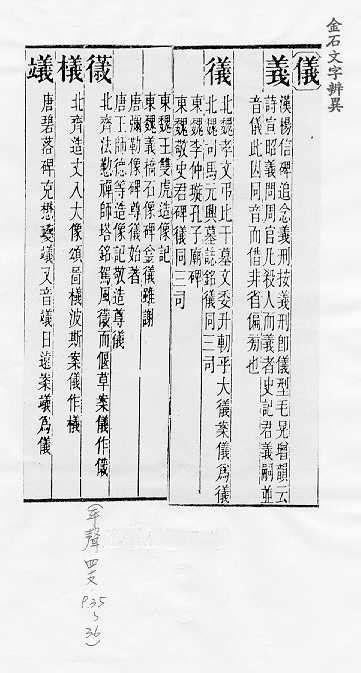 金石文字辨異
儀
義
漢楊信碑追念義刑按義刑卽儀型毛晃增韻云
詩宣昭義問周官凡殺人而義者史記君義嗣並
音儀此因同音而借非省偏旁也
儀
北魏孝文弔比干墓文委升軔乎大儀案儀爲儀
北魏司馬元興墓誌銘儀同三司
東魏李仲璇孔子廟碑
東魏敬史君碑儀同三司
東魏王雙虎造像記
東魏義橋石像碑金儀雖謝
唐彌勒像碑尊儀始著
唐王師德等造像記敬造尊儀
儀
北齊法懃禪師塔銘駕風儀而偃草案儀作儀
檥
北齊造丈八大像頌啚檥波斯案儀作檥
蟻
唐碧落碑克懋蟻又音蟻日遠案蟻爲儀
(平聲 四支
P35
~
36)